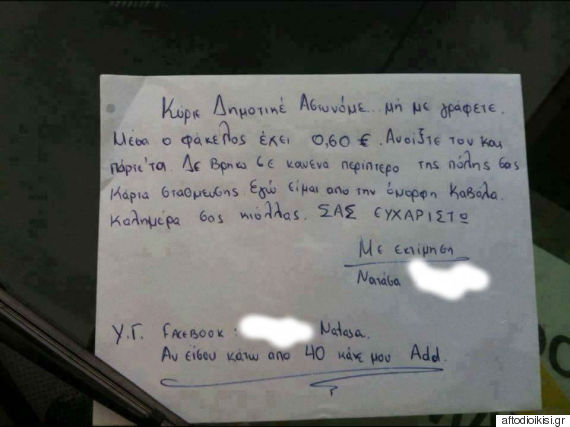 Κύριε Δημοτικέ Αστυνόμε... μή με γράφετε.
Μέσα ο φάκελος έχει 0,60 €. Ανοιξτε τον και
πάρτε'τα. Δε βρηκα σε κανενα περίπτερο της πόλης σας
κάρτα σταθμευσης. Εγώ είμαι απο την όμορφη Καβάλα.
Καλημέρα σας κιόλλας. ΣΑΣ ΕΥΧΑΡΙΣΤΩ
Με εκτιμηση
Νατάσα
Υ.Γ. FACEBOOK: Natasa.
Αν είσαι κάτω απο 40 κάνε μου Add.
aftodioikisi.gr